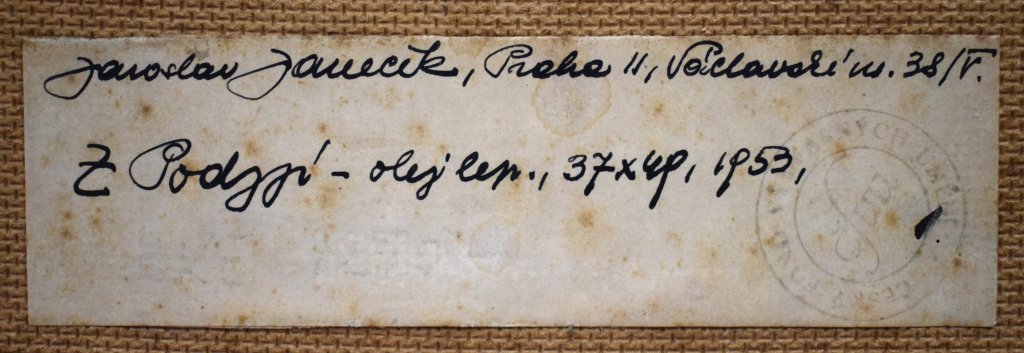 Jaroslav Janeček, Praha II, Václavské n. 38/V.
Z Podyjí - olej lep., 37x49, 1953,